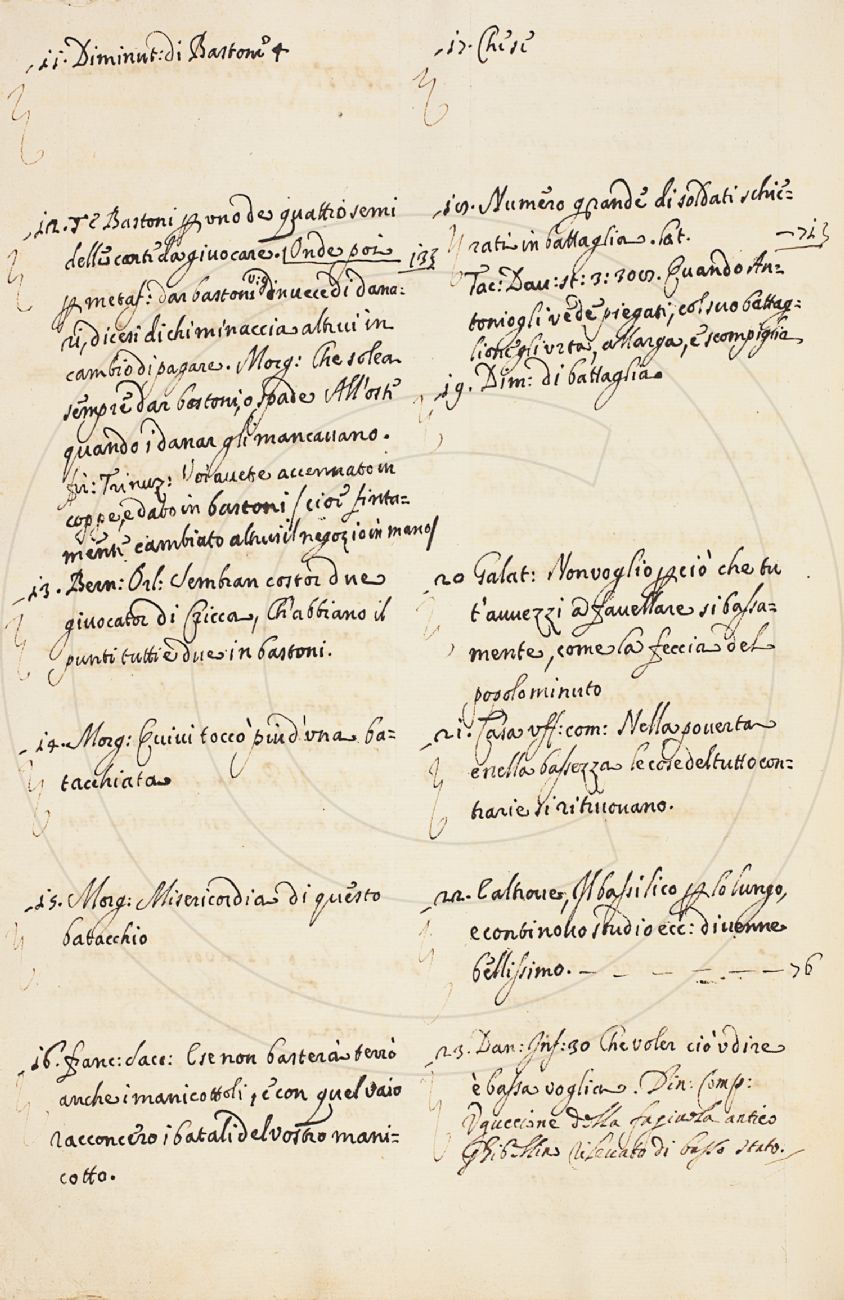 11. Diminut: di Bastone 4
12. Bastoni p uno de quattro semi
delle carte da giuocare. Onde poi 133
p metaf: dar bastoni in uece di dana-
ri, dicesi di chi minaccia altrui in
cambio di pagare. Morg: Che solea
sempre dar bastoni, o spade All'oste
quando i danar gli mancauano.
fir: Trinuz: Voi auete accennato in
coppe, e dato in bastoni / cioè finta-
mente cambiato altrui il negozio in mano/
13. Bern: Orl: Sembran costor due
giuocator di Cricca, Ch'abbiano il
punti tutti e due in bastoni.
14. Morg: Quiui toccò più d'una ba-
tacchiata
15. Morg: Misericordia di questo
batacchio
16. franc: Sacc: E se non basterà terrò
anche i manicottoli, e con quel vaio
racconcerò i batali del vostro mani-
cotto.
17. Chi si
18. Numero grande di soldati schie-
rati in battaglia. lat. 713
Tac: Dau: st: 3: 308. Quando An-
tonio gli vede piegati, col suo battag-
lione gli vrta, allarga, e scompiglia
19. Dim: di battaglia.
20 Galat: Non voglio p ciò che tu
t'auuezzi a fauellare si bassa-
mente, come la feccia del
popolo minuto
21. Casa vff: com: Nella pouertà
e nella bassezza le cose del tutto con-
trarie si ritruouano.
22. E altroue, Il bassilico p lo lungo,
e continouo studio ecc: diuenne
bellissimo. — — — — — — 76
23. Dan: Inf: 30 Che voler ciò vdire
è bassa voglia. Din: Comp:
Vguccione della fagiuola antico
Ghibellin rileuato di basso stato.